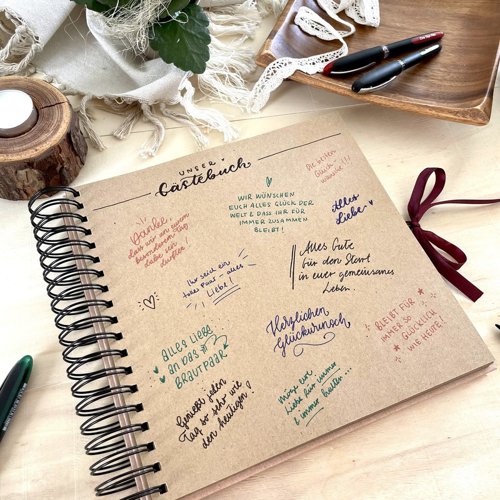 UNSER
Gästebuch
Danke
dass wir an eurem
besonderen Tag
dabei sein
durften!
WIR WÜNSCHEN
EUCH ALLES GLÜCK DER
WELT & DASS IHR FÜR
IMMER ZUSAMMEN
BLEIBT!
Die besten
Glück-
wünsche!!!
Alles
Liebe
Ihr seid ein
tolles Paar - alles
Liebe!
Alles Gute
für den Start
in euer gemeinsames
Leben.
ALLES LIEBE
AN DAS
BRAUTPAAR
Herzlichen
Glückwunsch
BLEIBT FÜR
IMMER SO
GLÜCKLICH
WIE HEUTE!
Genießt jeden
Tag so sehr wie
den heutigen!
Möge eure
Liebe für immer
& immer halten...